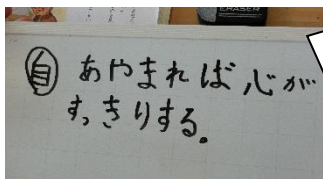 ERASER
自 あやまれば心が
すっきりする。